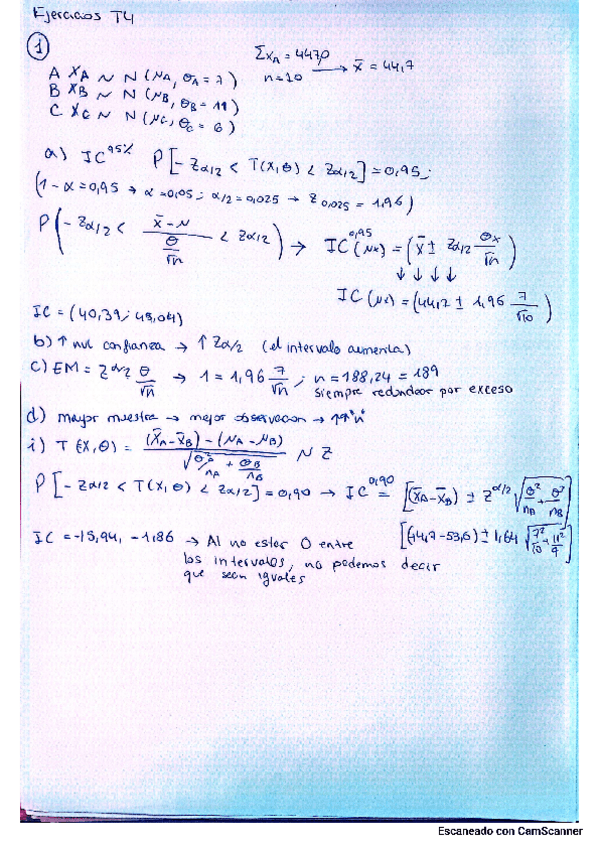 Ejercicios T4
1
Σx_A = 447,0
n = 10 → x̄ = 44,7
A X_A ~ N (μ_A, σ_A = 7)
B X_B ~ N (μ_B, σ_B = 11)
C X_C ~ N (μ_C, σ_C = 6)
a) IC^95% P[-Z_α/2 < T(X,θ) < Z_α/2] = 0,95;
(1 - α = 0,95 → α = 0,05; α/2 = 0,025 → Z_0,025 = 1,96)
P(-Z_α/2 < (x̄ - μ)/(σ/√n) < Z_α/2) → IC^0,95(μ_x) = (x̄ ± Z_α/2 σ_x/√n)
↓ ↓ ↓ ↓
IC(μ_x) = (44,7 ± 1,96 7/√10)
IC = (40,39; 49,04)
b) ↑ nvl confianza → ↑ Z_α/2 (el intervalo aumenta)
c) EM = Z^α/2 σ/√n → 1 = 1,96 7/√n; n = 188,24 = 189
siempre redondear por exceso
d) mayor muestra → mejor observacion → ↑↑"n"
i) T(X,θ) = ((X̄_A - X̄_B) - (μ_A - μ_B))/√(σ²_A/n_A + σ_B/n_B) ~ Z
P[-Z_α/2 < T(X,θ) < Z_α/2] = 0,90 → IC^0,90 = [(x̄_A - x̄_B) ± Z^α/2 √(σ²/n_A + σ²/n_B)]
IC = -15,94, -1,86 → Al no estar 0 entre
[(44,7-53,6) ± 1,64 √(7²/10 + 11²/9)]
los intervalos, no podemos decir
que sean iguales
Escaneado con CamScanner